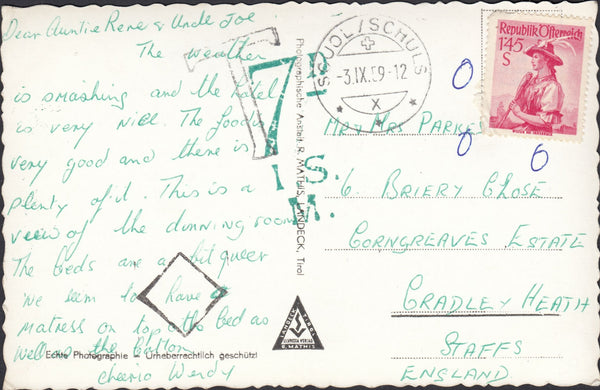 Dear Auntie Rene & Uncle Joe
The weather
is smashing and the hotel
is very nice. The food is
very good and there is
plenty of it. This is a
view of the dinning room
The beds are a bit queer
we seem to have a
matress on top of the bed as
well as the bottom
cheerio Wendy
Echte Photographie – Urheberrechtlich geschützt
Photographische Anstalt R. MATHIS, LANDECK, Tirol
T
7D
I. S.
M.
SCUOL/SCHULS
-3.IX.59-12
X
Republik Österreich
1.45
S
Mr & Mrs PARKES
6. BRIERY CLOSE
CORNGREAVES ESTATE
CRADLEY HEATH
STAFFS
ENGLAND
R. MATHIS